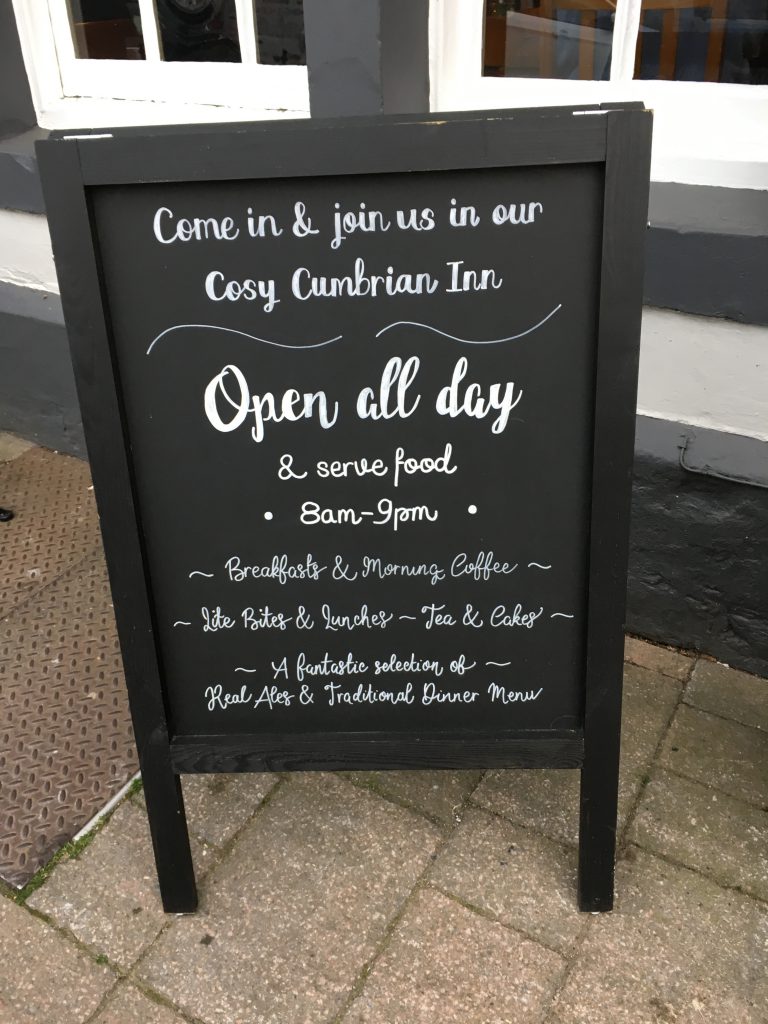 Come in & join us in our
Cosy Cumbrian Inn
Open all day
& serve food
• 8am-9pm •
~ Breakfasts & Morning Coffee ~
~ Lite Bites & Lunches ~ Tea & Cakes ~
~ A fantastic selection of ~
Real Ales & Traditional Dinner Menu